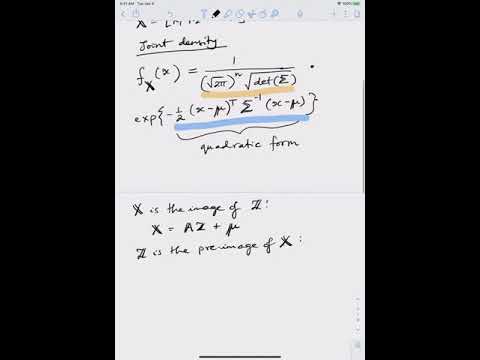 Joint density
f_𝕏(x) = 1 / ((√2π)ⁿ √det(Σ)) ·
exp{-1/2 (x-μ)ᵀ Σ⁻¹ (x-μ)}
quadratic form
𝕏 is the image of ℤ:
𝕏 = 𝔸ℤ + μ
ℤ is the pre-image of 𝕏: